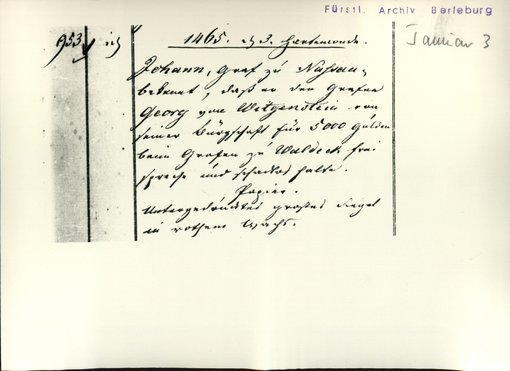 Fürstl. Archiv Berleburg
Januar 3
1465. d. 3. Hartemonde.
Johann, Graf zu Nassau,
bekennt, daß er den Grafen
Georg von Witgenstein von
seiner Bürgschaft für 5000 Gulden
beim Grafen zu Waldeck frei
spreche und schadlos halte.
Papier.
Untergedrücktes großes Siegel
in rothem Wachs.